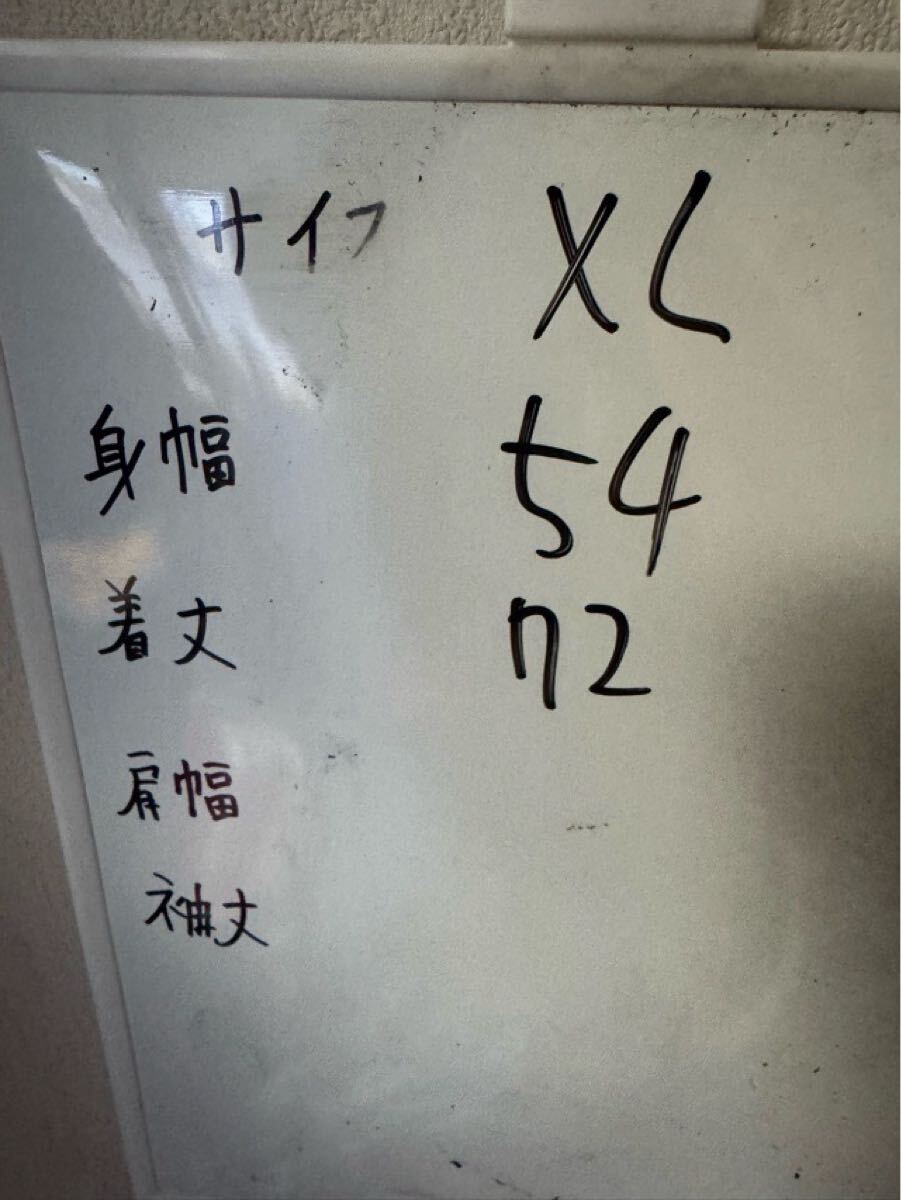 サイフ XL
身幅 54
着丈 72
肩幅
袖丈